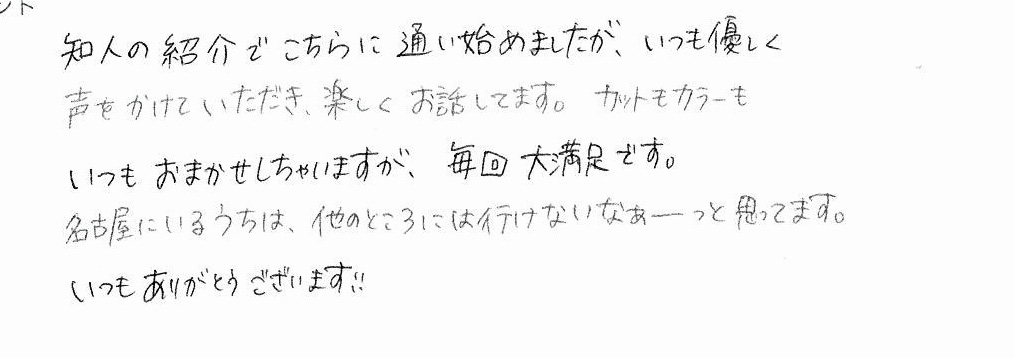 ント
知人の紹介でこちらに通い始めましたが、いつも優しく
声をかけていただき、楽しくお話してます。カットもカラーも
いつもおまかせしちゃいますが、毎回大満足です。
名古屋にいるうちは、他のところには行けないなぁーっと思ってます。
いつもありがとうございます!!